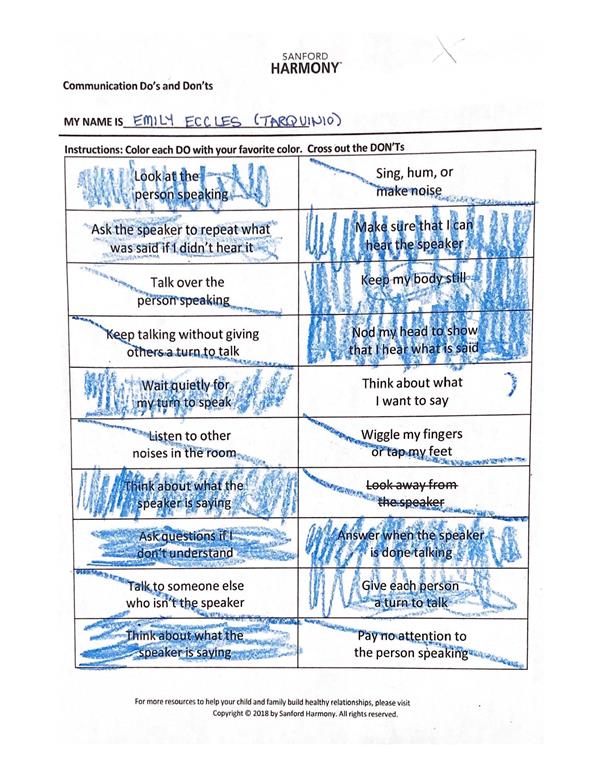 SANFORD
HARMONY™
Communication Do's and Don'ts
MY NAME IS EMILY ECCLES (TARQUINIO)
Instructions: Color each DO with your favorite color. Cross out the DON'Ts
Look at the
person speaking
Sing, hum, or
make noise
Ask the speaker to repeat what
was said if I didn't hear it
Make sure that I can
hear the speaker
Talk over the
person speaking
Keep my body still
Keep talking without giving
others a turn to talk
Nod my head to show
that I hear what is said
Wait quietly for
my turn to speak
Think about what
I want to say
Listen to other
noises in the room
Wiggle my fingers
or tap my feet
Think about what
the speaker is saying
Look away from
the speaker
Ask questions if I
don't understand
Answer when the speaker
is done talking
Talk to someone else
who isn't the speaker
Give each person
a turn to talk
Think about what the
speaker is saying
Pay no attention to
the person speaking
For more resources to help your child and family build healthy relationships, please visit
Copyright © 2018 by Sanford Harmony. All rights reserved.